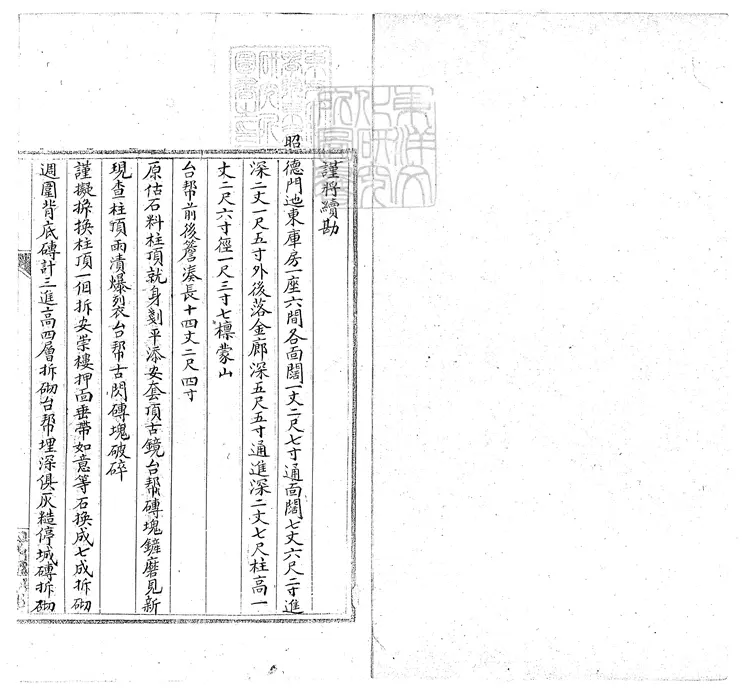 謹將續勘
昭德門迆東庫房一座六間各面闊一丈二尺七寸通面闊七丈六尺二寸進
深二丈一尺五寸外後落金廊深五尺五寸通進深二丈七尺柱高一
丈二尺六寸徑一尺三寸七檁蒙山
台幇前後簷湊長十四丈二尺四寸
原估石料柱頂就身剗平添安套頂古鏡台幇磚塊鏟磨見新
現查柱頂雨漬爆裂台幇古閃磚塊破碎
謹擬拆換柱頂一個拆安崇樓押面垂帶如意等石換成七成拆砌
週圍背底磚計三進高四層拆砌台幇埋深俱灰糙停城磚拆砌
東洋文化研究所